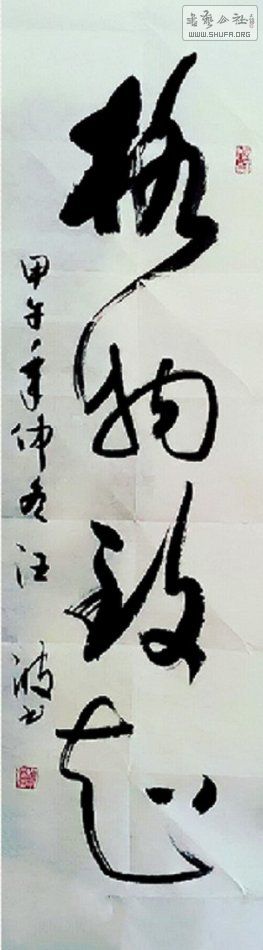 格物致知
甲午年仲冬 汪波书
書藝公社
WWW.SHUFA.ORG